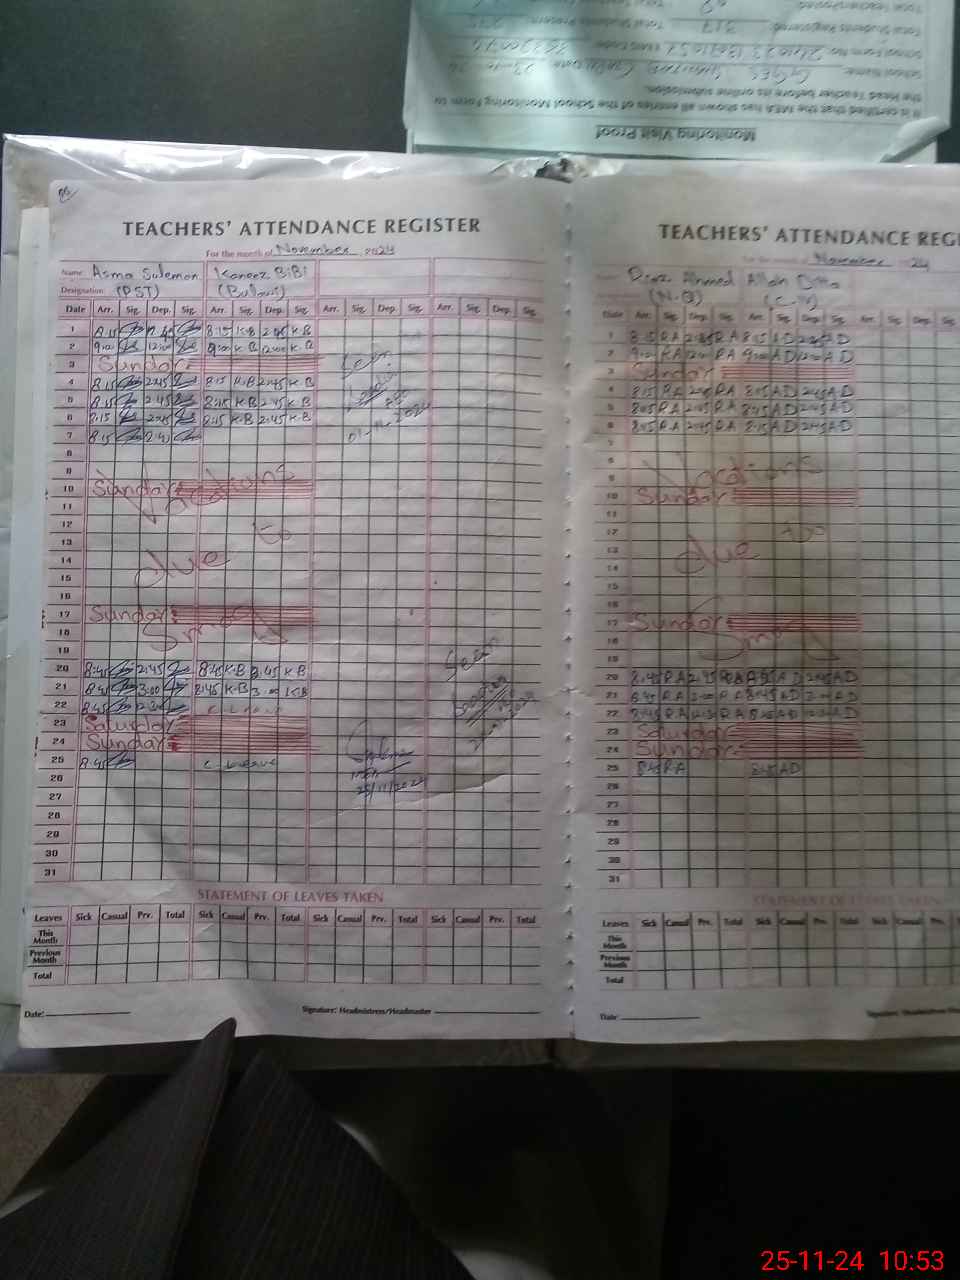 It is certified that the MEA has shown all entries of the School Monitoring Form to
the Head Teacher before its online submission.
Monitoring Visit Proof
TEACHERS' ATTENDANCE REGISTER
For the month of November 2024
Name: Asma Suleman Kaneez BiBi
Designation: (PST)
Date Arr. Sig. Dep. Sig. Arr. Sig. Dep. Sig. Arr. Sig. Dep. Sig. Arr. Sig. Dep. Sig.
1 8:15 K.B 2:45 K.B
2 9:00 12:00 9:00 K.B 12:00 K.B
3 Sunday
4 8:15 2:45 8:15 K.B 2:45 K.B
5 8:15 2:45 8:15 K.B 2:45 K.B
6 8:15 2:45 8:15 K.B 2:45 K.B
7 8:15
8
9
10 Sunday
11
12
13
14
15
16
17 Sunday
18
19
20 8:45 2:45 8:45 K.B 2:45 K.B
21 8:45 3:00 8:45 K.B 3:00 K.B
22 8:45 12:30
23 Saturday
24 Sunday
25 8:45 C. Leave
26
27
28
29
30
31
Vacations
due to
Smog
Seen
Seen
25/11/2024
STATEMENT OF LEAVES TAKEN
Leaves Sick Casual Prv. Total Sick Casual Prv. Total Sick Casual Prv. Total Sick Casual Prv. Total
This Month
Previous Month
Total
Date: Signature: Headmistress/Headmaster
TEACHERS' ATTENDANCE REGI
For the month of November 2024
Ahmed Allah Ditta
Date Arr. Sig. Dep. Sig. Arr. Sig. Dep. Sig. Arr. Sig. Dep. Sig.
1 8:15 R A 2:45 R A 8:15 A D 2:45 A D
2 9:00 R A 12:00 R A 9:00 A D 12:00 A D
3 Sunday
4 8:15 R A 2:45 R A 8:15 A D 2:45 A D
5 8:15 R A 2:45 R A 8:15 A D 2:45 A D
6 8:15 R A 2:45 R A 8:15 A D 2:45 A D
Vacations
10 Sunday
11
12
13
due to
14
15
16
17 Sunday
18
Smog
19
20 8:45 R A 2:45 R A 8:45 A D 2:45 A D
21 8:45 R A 3:00 R A 8:45 A D 3:00 A D
22 8:45 R A 12:30 R A 8:45 A D 12:30 A D
23 Saturday
24 Sunday
25 8:45 R A 8:45 A D
26
27
28
29
30
31
STATEMENT OF LEAVES TAKEN
Leaves Sick Casual Prv. Total Sick Casual Prv. Total Sick Casual Prv.
This Month
Previous Month
Total
Date:
25-11-24 10:53